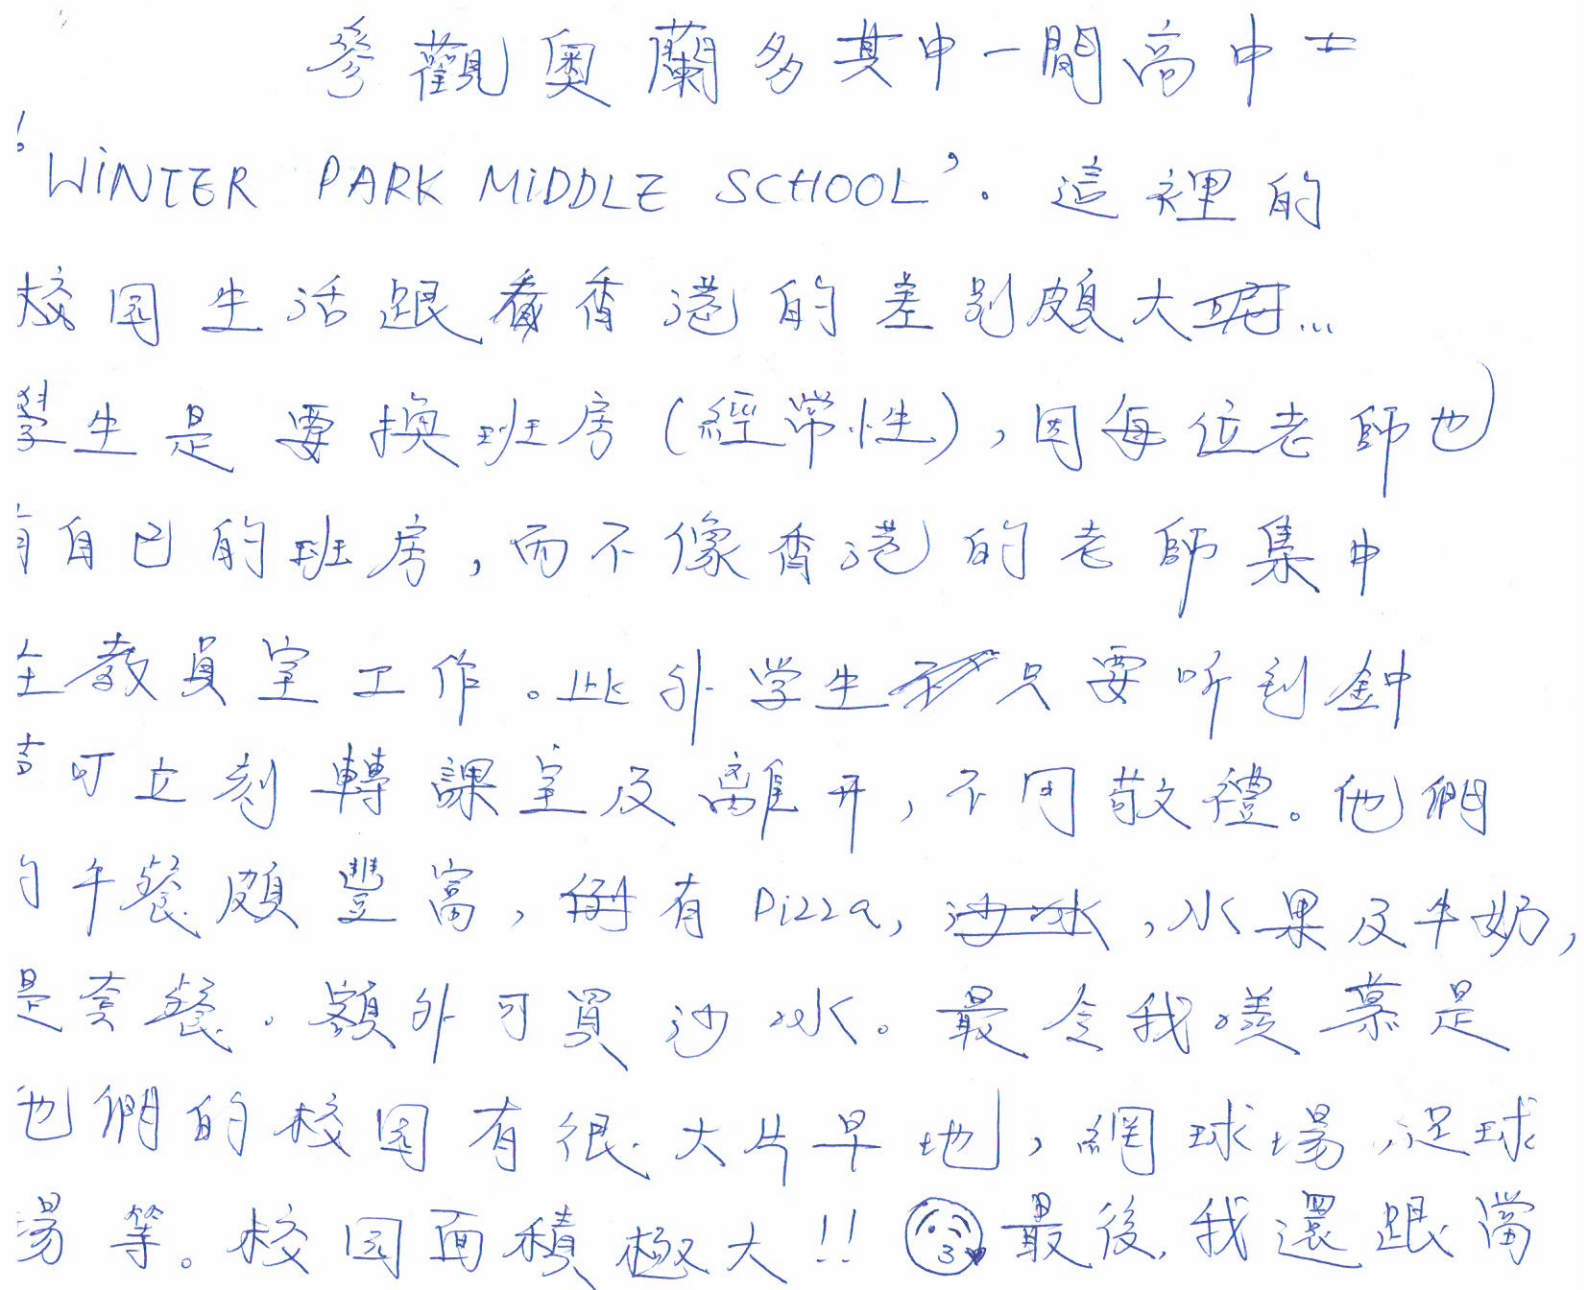 參觀奧蘭多其中一間高中=
'WiNTER PARK MiDDLE SCHOOL'. 這裡的
校园生活跟香港的差別頗大...
學生是要換班房(經常性),因每位老師也
有自己的班房,而不像香港的老師集中
在教員室工作。此外学生只要听到鈡
声可立刻轉課室及離开,不用敬禮。他們
的午餐頗豐富,有Pizza,水果及牛奶,
是套餐。額外可買沙冰。最令我羨慕是
他們的校园有很大片草地,網球場,足球
場等。校园面積極大!!最後,我還跟當